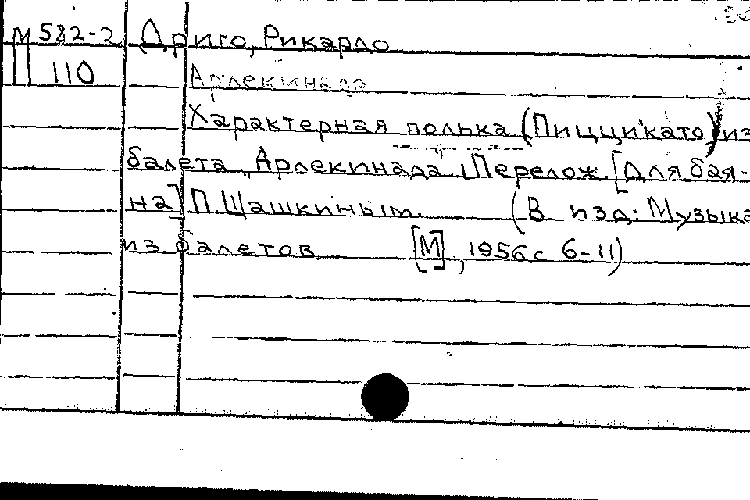 М 582-2 Дриго, Рикардо
110 Арлекинада
Характерная полька (Пиццикато) из
балета „Арлекинада". Перелож. [для бая-
на] П. Шашкиным. (В изд: Музыка
из балетов [М], 1956 с 6-11)